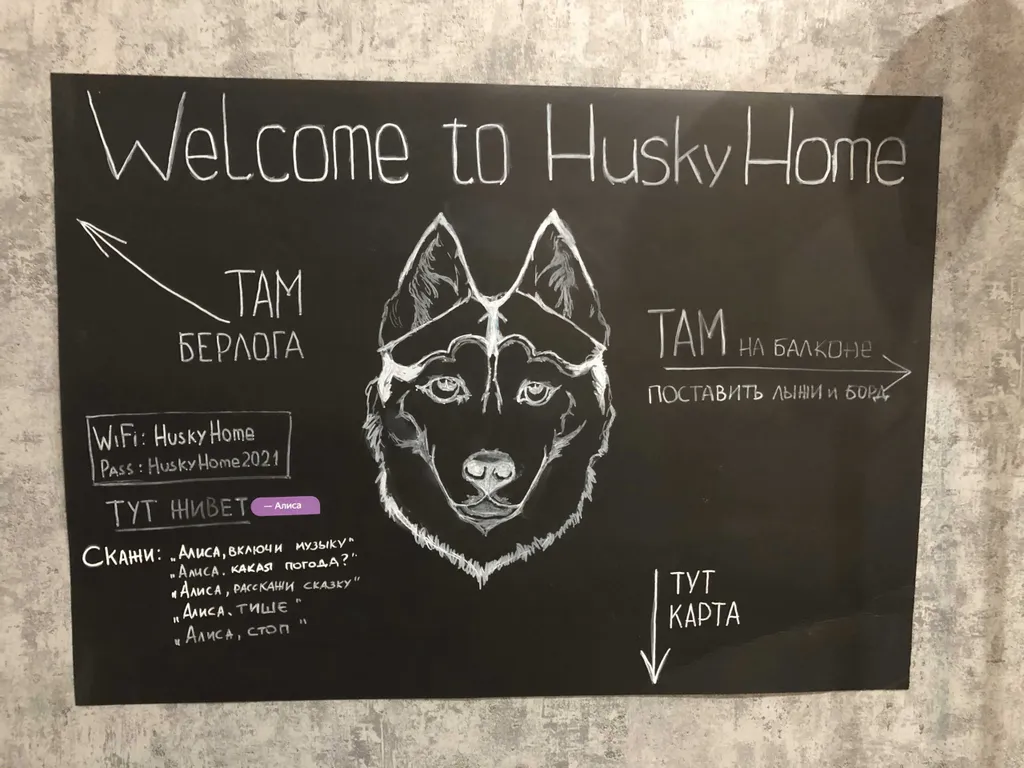 Welcome to Husky Home
ТАМ
БЕРЛОГА
ТАМ НА БАЛКОНЕ
ПОСТАВИТЬ ЛЫЖИ И БОРД
WiFi: HuskyHome
Pass: HuskyHome2021
ТУТ ЖИВЕТ — Алиса
СКАЖИ: „АЛИСА, ВКЛЮЧИ МУЗЫКУ"
„АЛИСА. КАКАЯ ПОГОДА?"
„АЛИСА, РАССКАЖИ СКАЗКУ"
„АЛИСА, ТИШЕ"
„АЛИСА, СТОП"
ТУТ
КАРТА